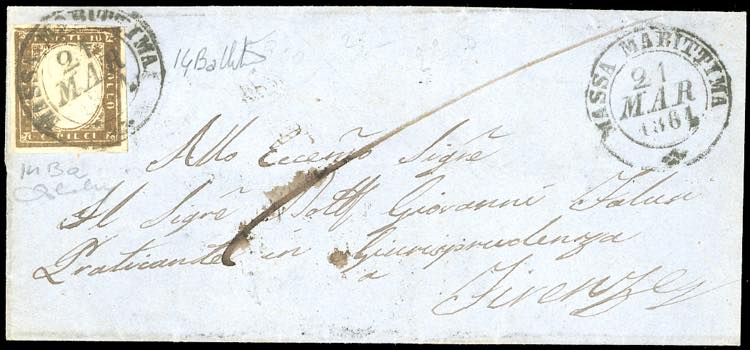 MASSA MARITTIMA
21
MAR
14 Ba
MASSA MARITTIMA
21
MAR
1861
Allo Eccemo Sigre
Il Sigre Dott Giovanni Falusi
Praticante in Giurisprudenza
a
Firenze